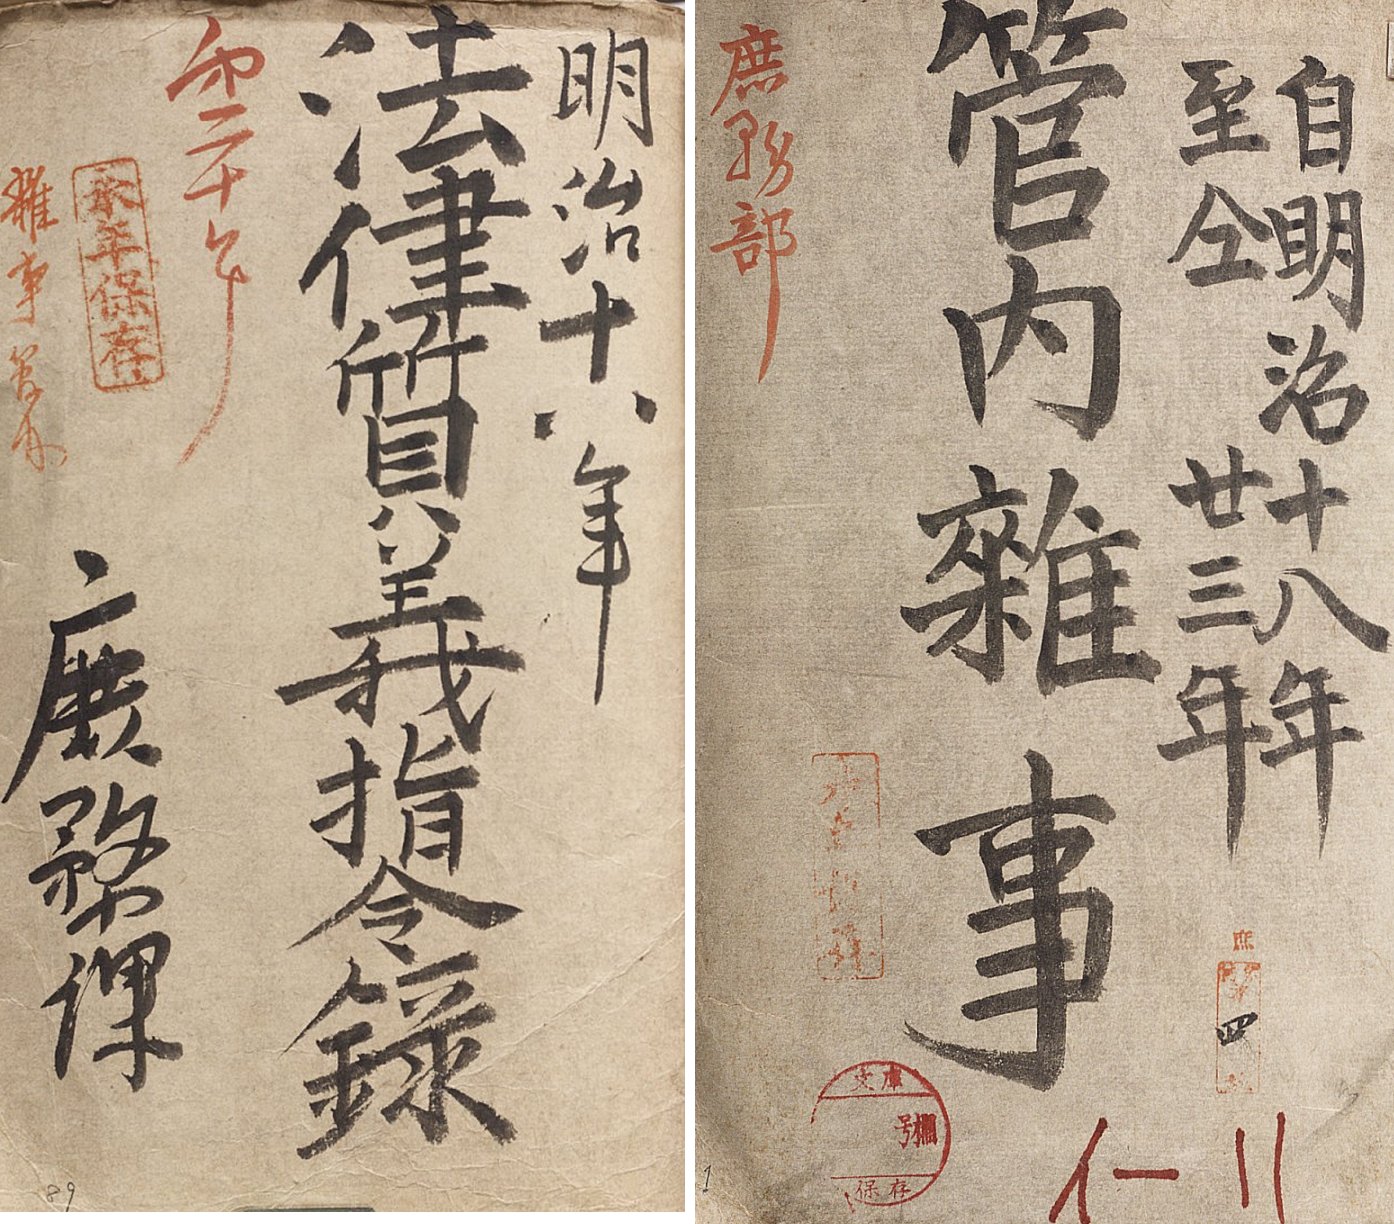 明治十八年
法律質義指令録
二十年
永年保存
雑事
庶務課
89
自明治十八年
至仝廿三年
管内雜事
庶務部
庶
第四
文庫
号棚
保存
イ一
1